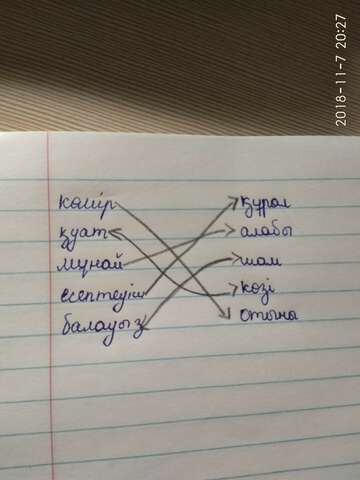 2018-11-7 20:27
көмір құрал
қуат алабы
мұнай шам
есептеуіш көзі
балауыз отыны